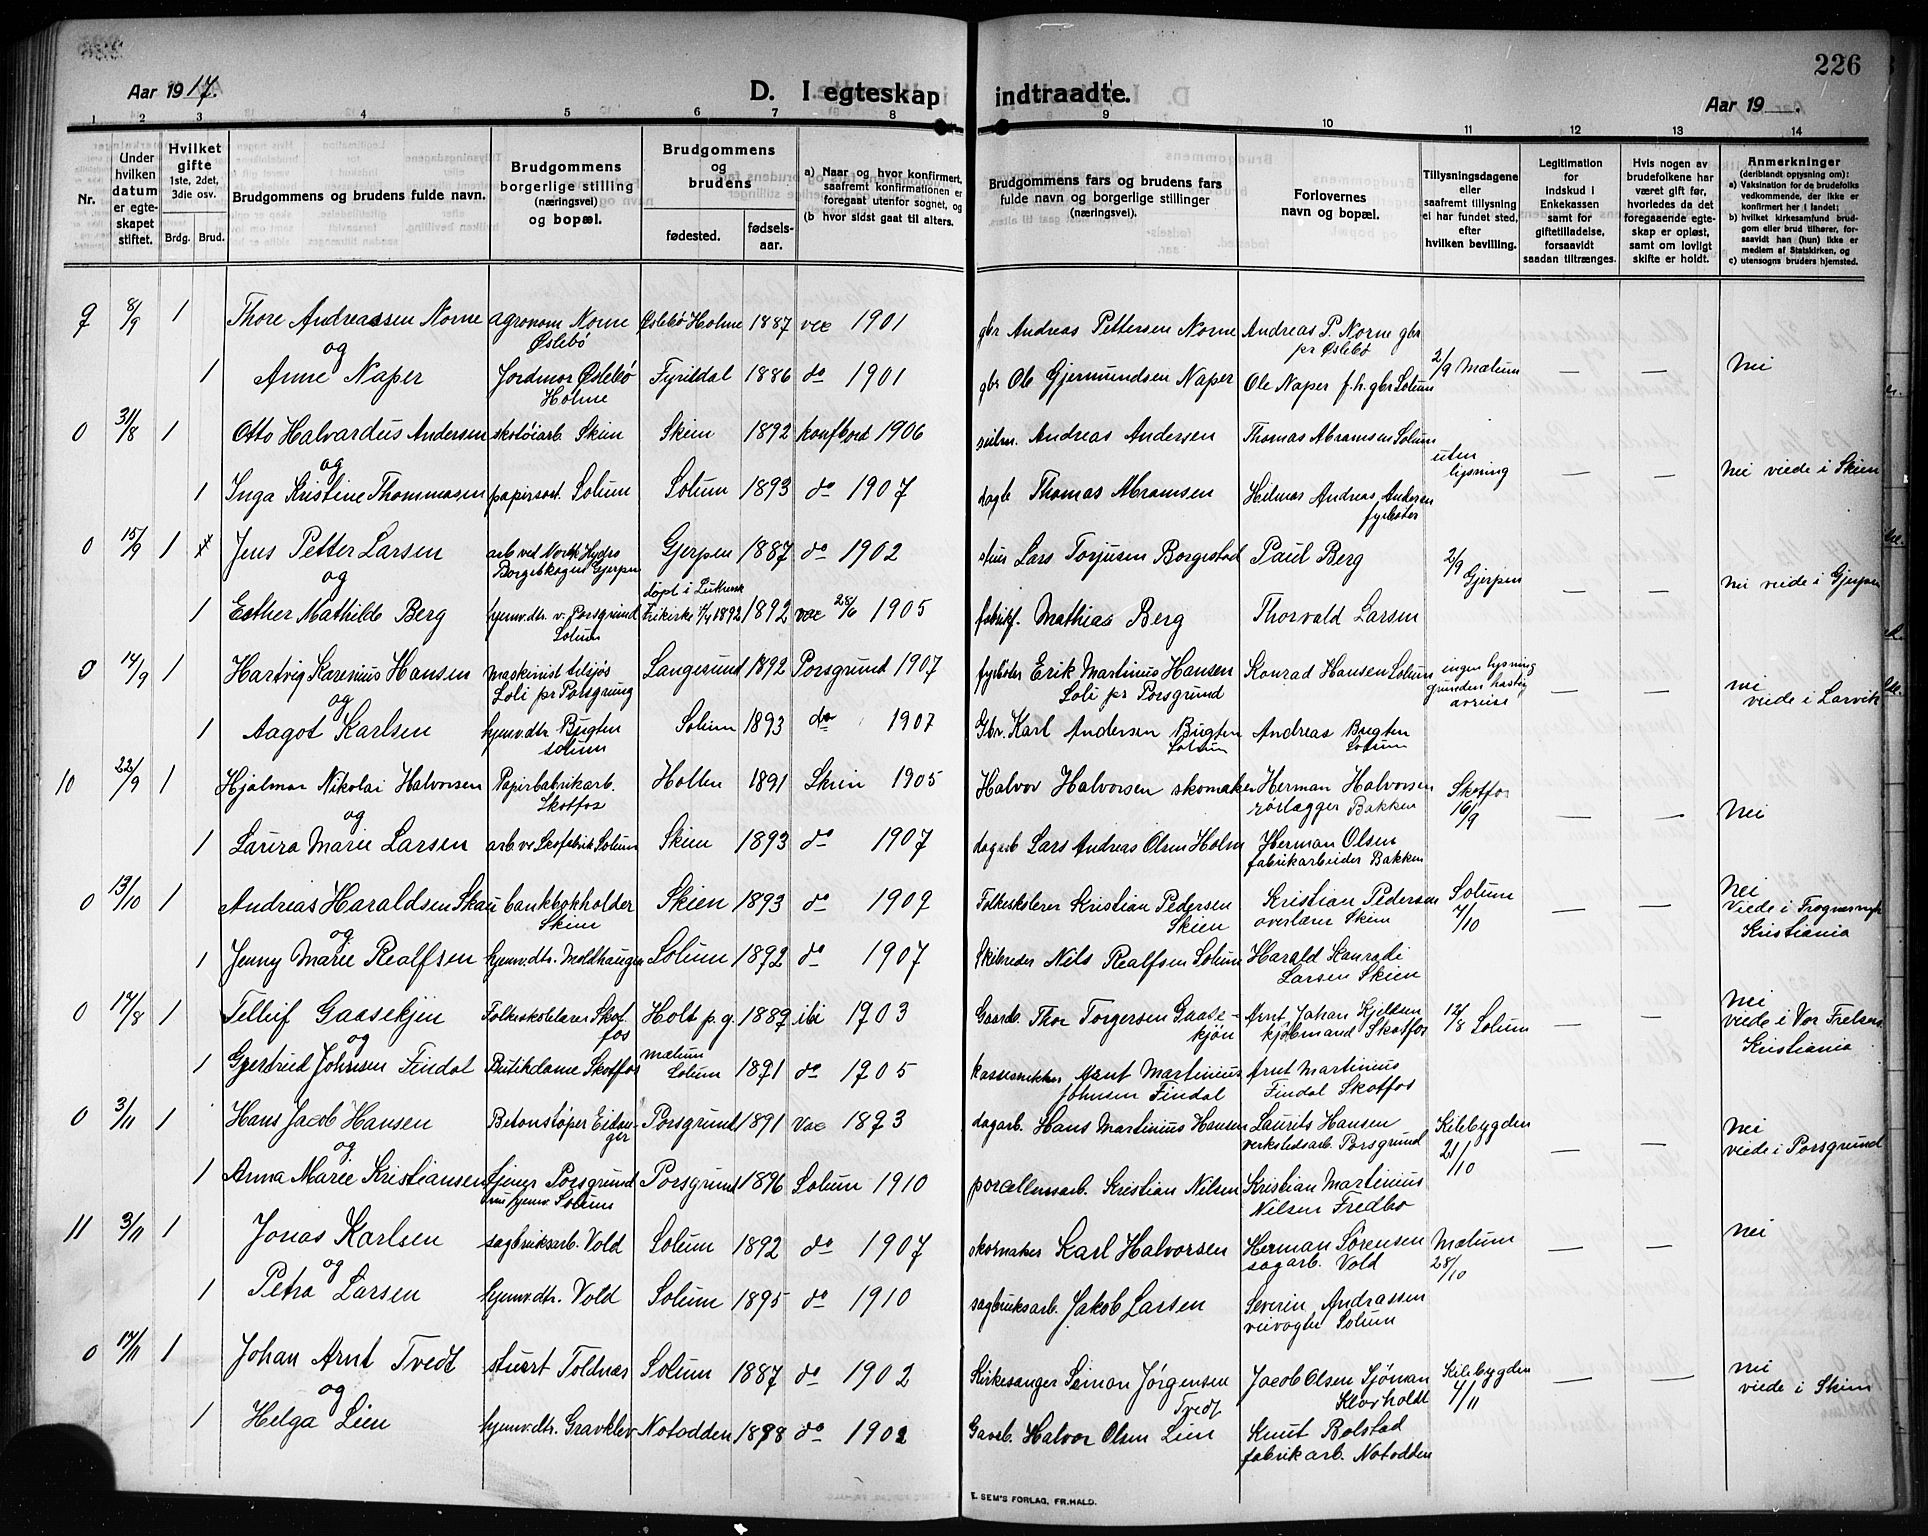 226
Aar 1917.
D. I egteskap indtraadte.
Aar 19 .
1 2 3 4 5 6 7 8 9 10 11 12 13 14
Nr.
Under hvilken datum er egteskapet stiftet.
Hvilket gifte 1ste, 2det, 3die osv.
Brdg. Brud.
Brudgommens og brudens fulde navn.
Brudgommens borgerlige stilling (næringsvei) og bopæl.
Brudgommens og brudens
fødested. fødselsaar.
a) Naar og hvor konfirmert, saafremt konfirmationen er foregaat utenfor sognet, og
(b hvor sidst gaat til alters.
Brudgommens fars og brudens fars fulde navn og borgerlige stillinger (næringsvei).
Forlovernes navn og bopæl.
Tillysningsdagene eller saafremt tillysning ei har fundet sted, efter hvilken bevilling.
Legitimation for Indskud i Enkekassen samt for giftetilladelse, forsaavidt saadan tiltrænges.
Hvis nogen av brudefolkene har været gift før, hvorledes da det foregaaende egteskap er opløst, samt om lovligt skifte er holdt.
Anmerkninger (deriblandt optysning om):
a) Vaksination for de brudefolks vedkommende, der ikke er konfirmert her i landet;
b) hvilket kirkesamfund brudgom eller brud tilhører, forsaavidt han (hun) ikke er medlem af Statskirken, og
c) utensogns bruders hjemsted.
9 8/9 1 Thore Andreassen Norne agronom Norne Øslebø Øslebø Holme 1887 vac 1901 gbr Andreas Pettersen Norne Andreas P. Norne gbr pr Øslebø
og
1 Anne Naper Jordmor Øslebø Holme Fyrildal 1886 do 1901 gbr Ole Gjermundsen Naper Ole Naper f.h. gbr Solum 2/9 Mælum — — Nei
0 31/8 1 Otto Halvardus Andersen skotøiarb. Skien Skien 1892 konfbord 1906 Andreas Andersen Thomas Abramsen Solum
og
1 Inga Kristine Thommasen papirsort. Solum Solum 1893 do 1907 dagb Thomas Abramsen Hilmar Andreas Andersen fyrbøter uten lysning — — Nei viede i Skien
0 15/9 1 Jens Petter Larsen arb ved Norsk Hydro Borgeskogen Gjerpen Gjerpen 1887 do 1902 Lars Torjusen Borgestad Paul Berg
og
1 Esther Mathilde Berg hjemv.dtr. v. Porsgrund Solum døpt i Luthersk Frikirke 1892 1892 vac 25/6 1905 fabrikf. Mathias Berg Thorvald Larsen 2/9 Gjerpen — — Nei viede i Gjerpen
0 14/9 1 Hartvig Karenius Hansen maskinist tilsjøs Soli pr Porsgrund Langesund 1892 Porsgrund 1907 fyrbøder Erik Martinius Hansen Soli pr Porsgrund Konrad Hansen Solum ingen lysning grunden hastig avreise — — nei viede i Larvik
og
1 Aagot Karlsen hjemv.dtr Bugten Solum Solum 1893 do 1907 Gbr. Karl Andersen Bugten Solum Andreas Bugten Solum
10 22/9 1 Hjalmar Nikolai Halvorsen Papirfabrikarb. Skotfos Holten 1891 Skien 1905 Halvor Halvorsen skomaker Herman Halvorsen rørlægger Bakken Skotfos 16/9 — — Nei
og
1 Laura Marie Larsen arb ve Skofabrik Solum Skien 1893 do 1907 dagarb Lars Andreas Olsen Holm Herman Olsen fabrikarbeider Bakken
0 13/10 1 Andreas Haraldsen Skau bankbokholder Skien Skien 1893 do 1909 Folkeskolelærer Kristian Pedersen Skien Kristian Pedersen overlærer Skien Solum 7/10 — — Nei Viede i Frogner Kristiania
og
1 Jenny Marie Realfsen hjemv.dtr. Moldhaugen Solum 1892 do 1907 Skibreder Nils Realfsen Solum Harald Konradi Larsen Skien
0 17/8 1 Tellef Gaasekjen Folkeskolelærer Skotfos Holt p.g. 1889 ibi 1903 Gaardb. Thor Torgersen Gaasekjøn Arnt Johan Kjeldsen kjøbmand Skotfos 12/8 Solum — — Nei viede i Vor Frelsers Kristiania
og
1 Gjertrud Johnsen Findal Butikdame Skotfos Mælum Solum 1891 do 1905 kassesnikker Arnt Martinius Johnsen Findal Arnt Martinius Findal Skotfos
0 3/11 1 Hans Jacob Hansen Betonstøper Eidanger Porsgrund 1891 Vac 1893 dagarb. Hans Martinius Hansen Laurits Hansen verkstedsarb. Porsgrund Kilebygden 21/10 — — Nei viede i Porsgrund
og
1 Anna Marie Kristiansen tjener Porsgrund hjemv. Solum Porsgrund 1896 Solum 1910 porcellensarb. Kristian Nilsen Kristian Martinius Nilsen Fredbo
11 3/11 1 Jonas Karlsen sagbruksarb. Vold Solum 1892 do 1907 skomaker Karl Halvorsen Herman Sørensen sagarb. Vold Mælum 28/10 — — Nei
og
1 Petra Larsen hjemv.dtr. Vold Solum 1895 do 1910 sagbruksarb. Jakob Larsen Severin Andrassen veivogter Solum
0 17/11 1 Johan Arnt Tvedt stuert Toldnæs Solum 1887 do 1902 Kirkesanger Simon Jørgensen Tvedt Jacob Olsen Sjøman Klovholdt Kilebygden 4/11 — — Nei viede i Skien
og
1 Helga Lien hjemv.dtr. Gravklev Notodden 1898 do 1902 Gaardb. Halvor Olsen Lien Knut Bolstad fabrikarb. Notodden
E. SEM'S FORLAG, FR.HALD.